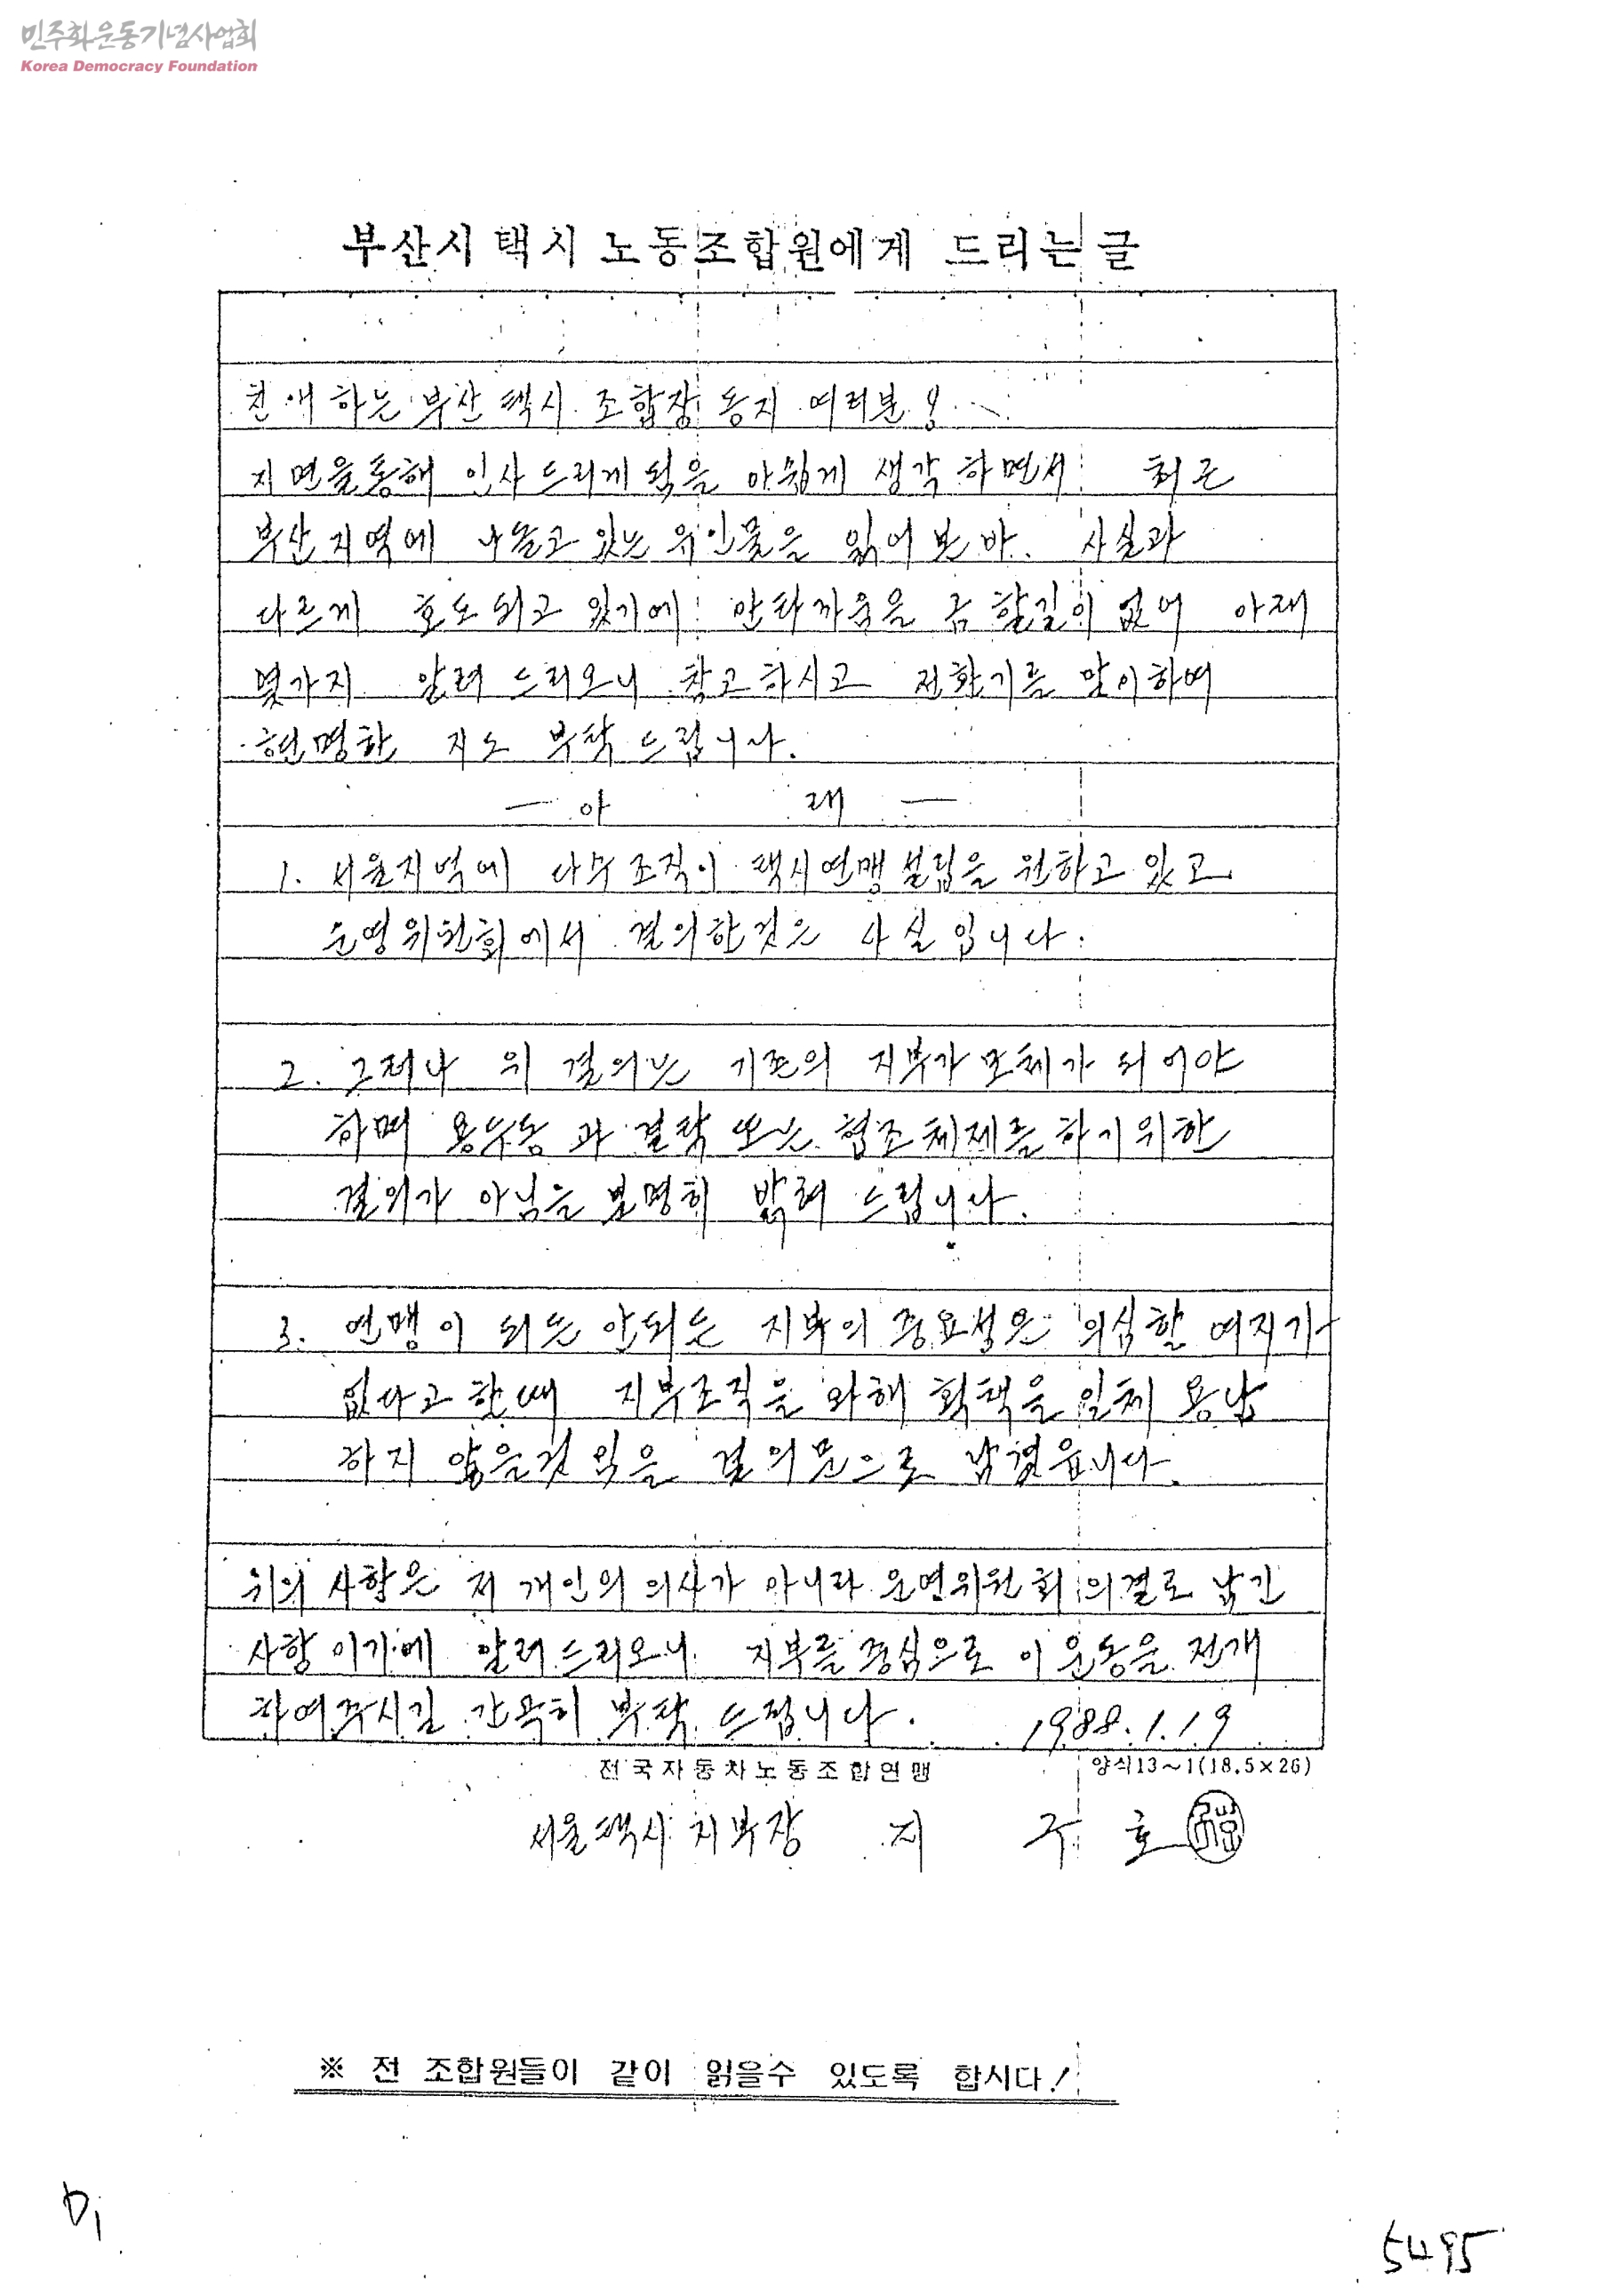 민주화운동기념사업회
Korea Democracy Foundation
부산시 택시 노동조합원에게 드리는 글
친애하는 부산 택시 조합장 동지 여러분!
지면을통해 인사드리게 됨을 아쉽게 생각하면서 최근
부산지역에 나돌고 있는 유인물을 읽어본바. 사실과
다르게 호도되고 있기에 안타까움을 금할길이 없어 아래
몇가지 알려 드리오니 참고하시고 전환기를 맞이하여
현명한 지도 부탁드립니다.
— 아 래 —
1. 서울지역에 다수조직이 택시연맹설립을 원하고 있고
운영위원회에서 결의한것은 사실입니다.
2. 그러나 위 결의는 기존의 지부가 모체가 되어야
하며 용수동과 결탁 또는 협조체제를 하기위한
결의가 아님을 분명히 밝혀 드립니다.
3. 연맹이 되든 안되든 지부의 중요성은 의심할 여지가
없다고 할때 지부조직을 와해 획책을 일체 용납
하지 않을것 임을 결의문으로 남겼읍니다.
위의 사항은 저 개인의 의사가 아니라 운영위원회 의결로 남긴
사항이기에 알려드리오니 지부를 중심으로 이 운동을 전개
하여주시길 간곡히 부탁 드립니다. 1988.1.19
전국자동차노동조합연맹 양식13~1(18.5×26)
서울택시 지부장 지 구 호
※ 전 조합원들이 같이 읽을수 있도록 합시다!
5495